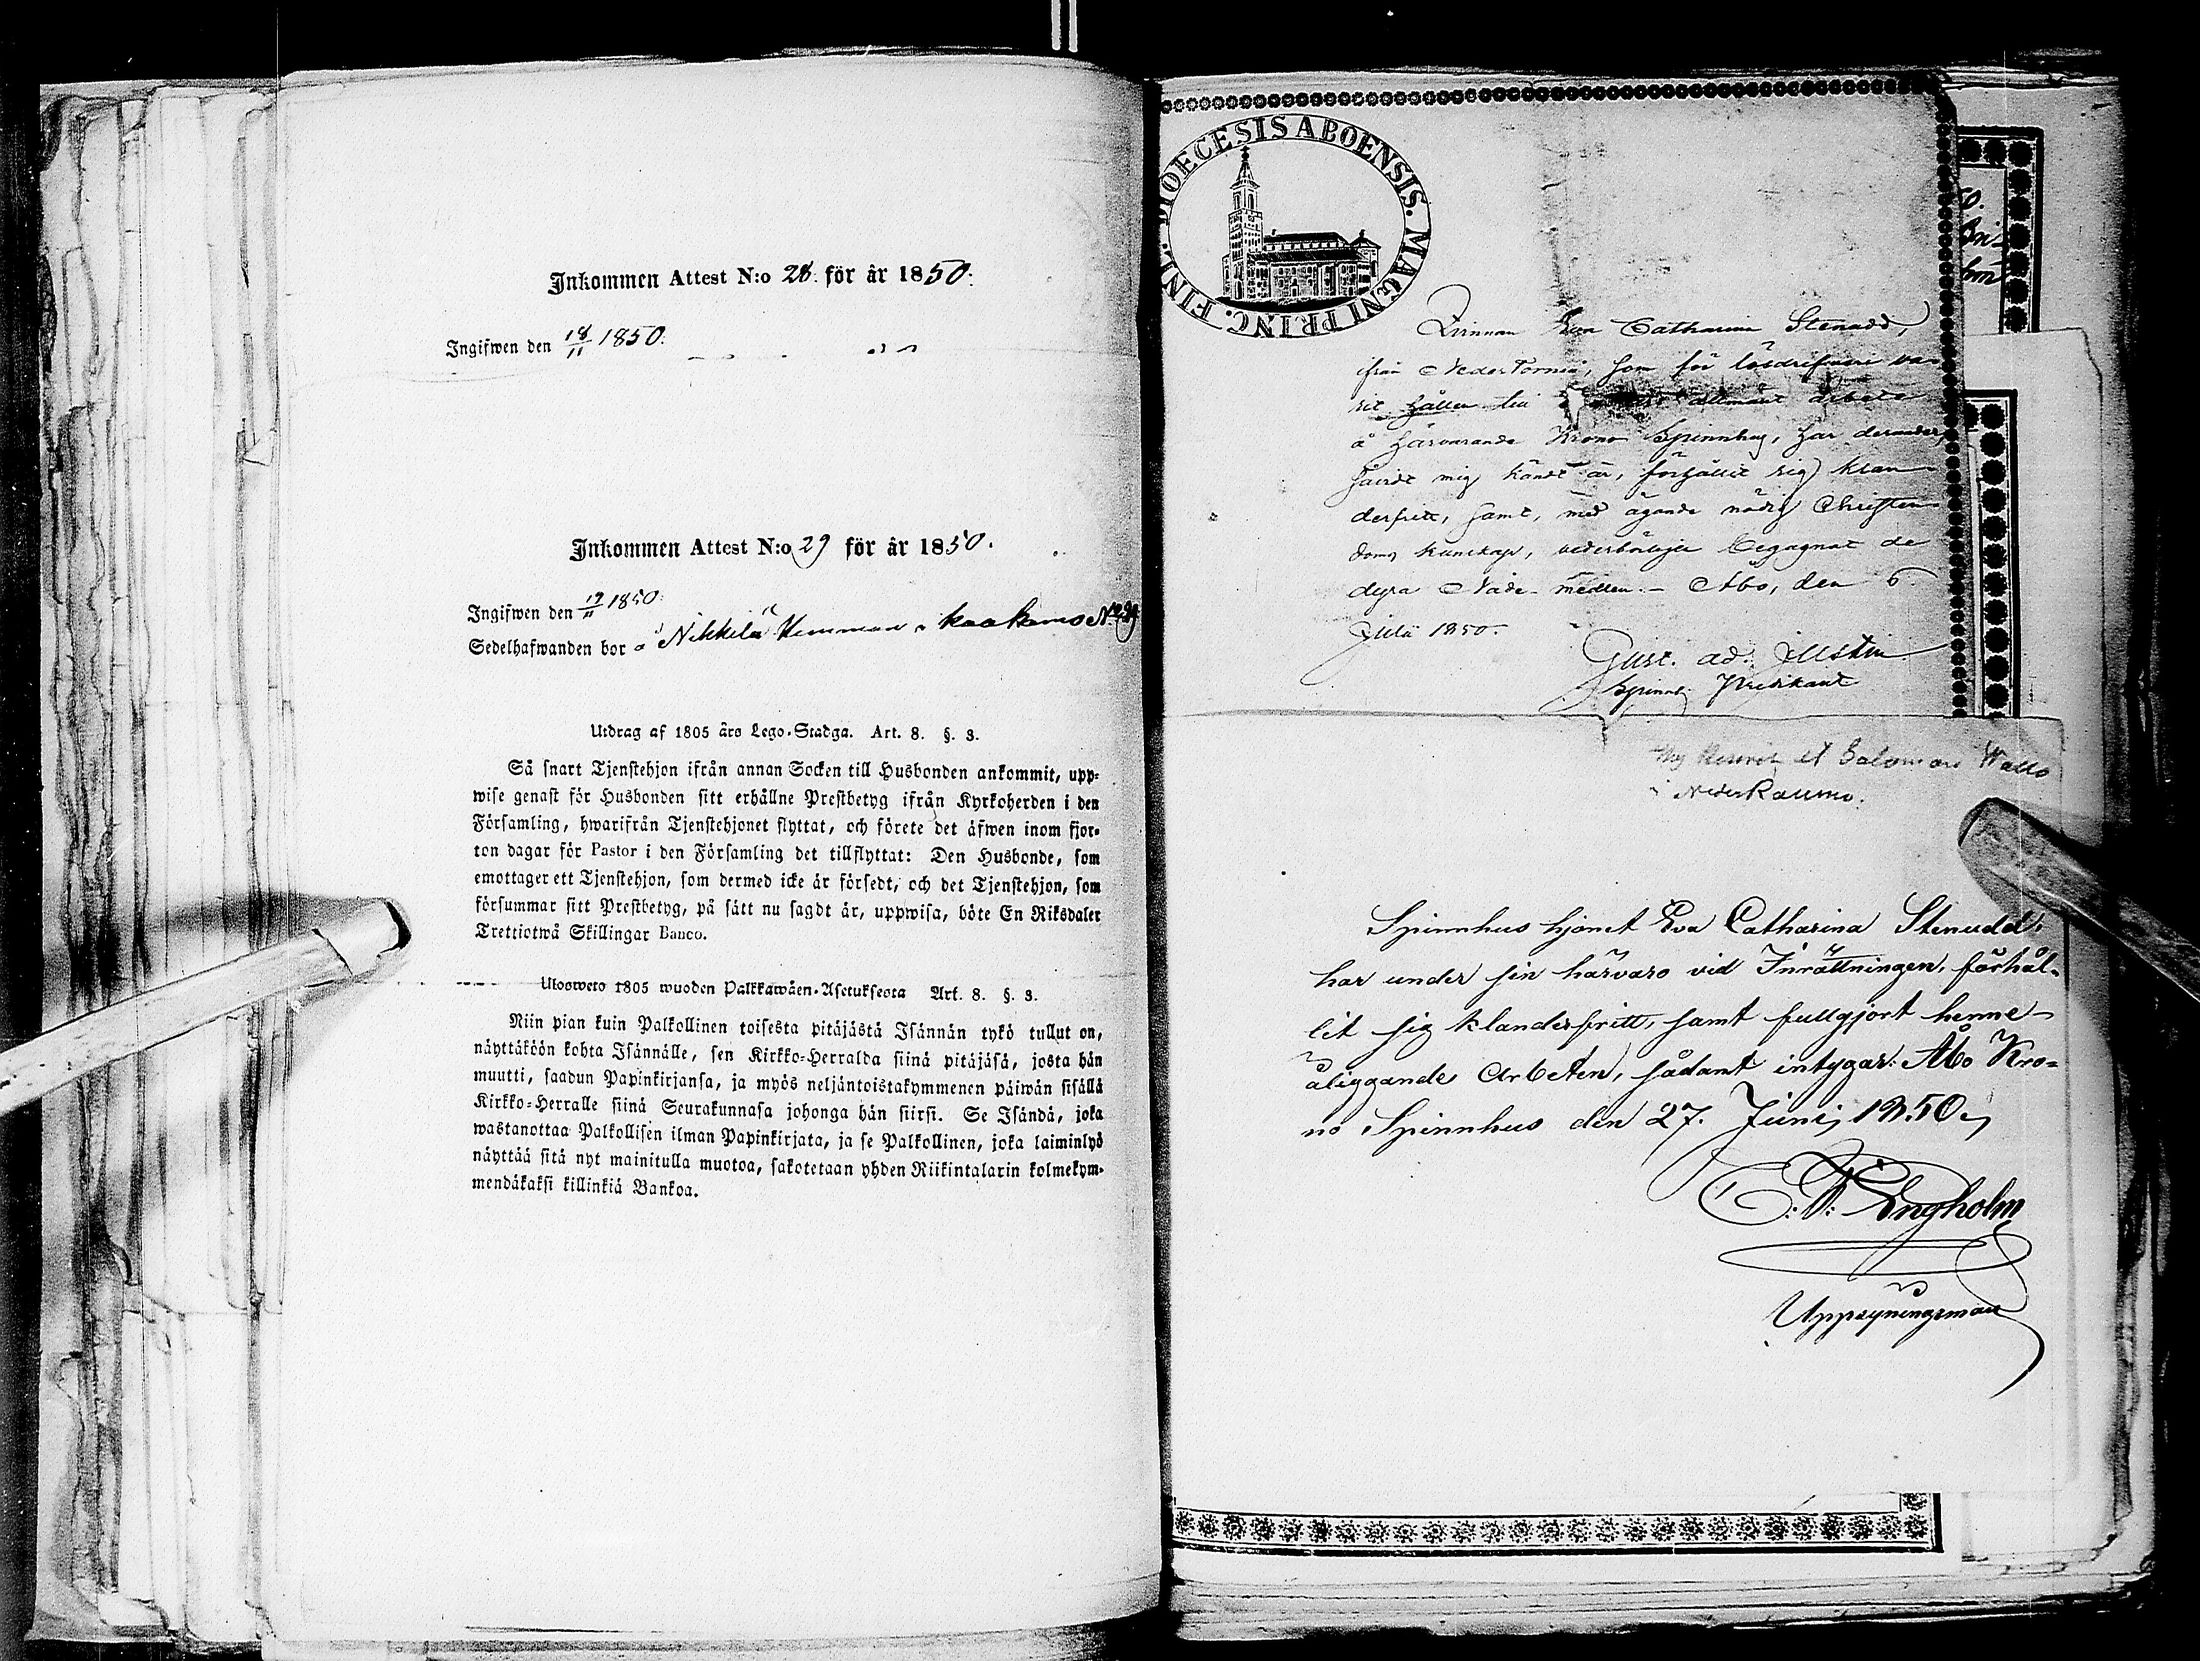 Inkommen Attest N:o 28. för år 1850.
Ingifwen den 18/11 1850.
Inkommen Attest N:o 29 för år 1850.
Ingifwen den 19/11 1850.
Sedelhafwanden bor å Nikkilä Hemman i Kaakamo N:o 29
Utdrag af 1805 års Lego-Stadga. Art. 8. §. 3.
Så snart Tjenstehjon ifrån annan Socken till Husbonden ankommit, upp-
wise genast för Husbonden sitt erhållne Prestbetyg ifrån Kyrkoherden i den
Församling, hwarifrån Tjenstehjonet flyttat, och förete det äfwen inom fjor-
ton dagar för Pastor i den Församling det tillflyttat: Den Husbonde, som
emottager ett Tjenstehjon, som dermed icke är försedt, och det Tjenstehjon, som
försummar sitt Prestbetyg, på sätt nu sagdt är, uppwisa, böte En Riksdaler
Trettiotwå Skillingar Banco.
Ulosweto 1805 wuoden Palkkawäen-Asetuksesta Art. 8. §. 3.
Niin pian kuin Palkollinen toisesta pitäjästä Isännän tykö tullut on,
näyttäköön kohta Isännälle, sen Kirkko-Herralda siinä pitäjäsä, josta hän
muutti, saadun Papinkirjansa, ja myös neljäntoistakymmenen päiwän sisällä
Kirkko-Herralle siinä Seurakunnasa johonga hän siirsi. Se Isändä, joka
wastanottaa Palkollisen ilman Papinkirjata, ja se Palkollinen, joka laiminlyö
näyttää sitä nyt mainitulla muotoa, sakotetaan yhden Riikintalarin kolmekym-
mendäkaksi killinkiä Bankoa.
DIOECESIS ABOENSIS. MAGNI PRINC. FINL.
Qvinnan Eva Catharina Stenudd,
ifrån Neder Torneå, som för lösdrifveri va-
rit hållen till allmänt arbete
å härvarande Krono Spinnhus, har derunder,
såvidt mig kändt är, förhållit sig klan-
derfritt, samt, med ägande nödig Christen-
doms kunskap, vederbörligen begagnat de
dyra Nåde-medlen. - Åbo, den 6
Julii 1850.
Gust. Ad.
Spinnh. Predikant
et Salomon
Neder Raumo.
Spinnhus hjonet Eva Catharina Stenudd,
har under sin härvaro vid Inrättningen, förhål-
lit sig klanderfritt, samt fullgjort henne
åliggande Arbeten, sådant intygar: Åbo Kro-
no Spinnhus den 27. Junij 1850.
C. F. Engholm
Uppsyningsman